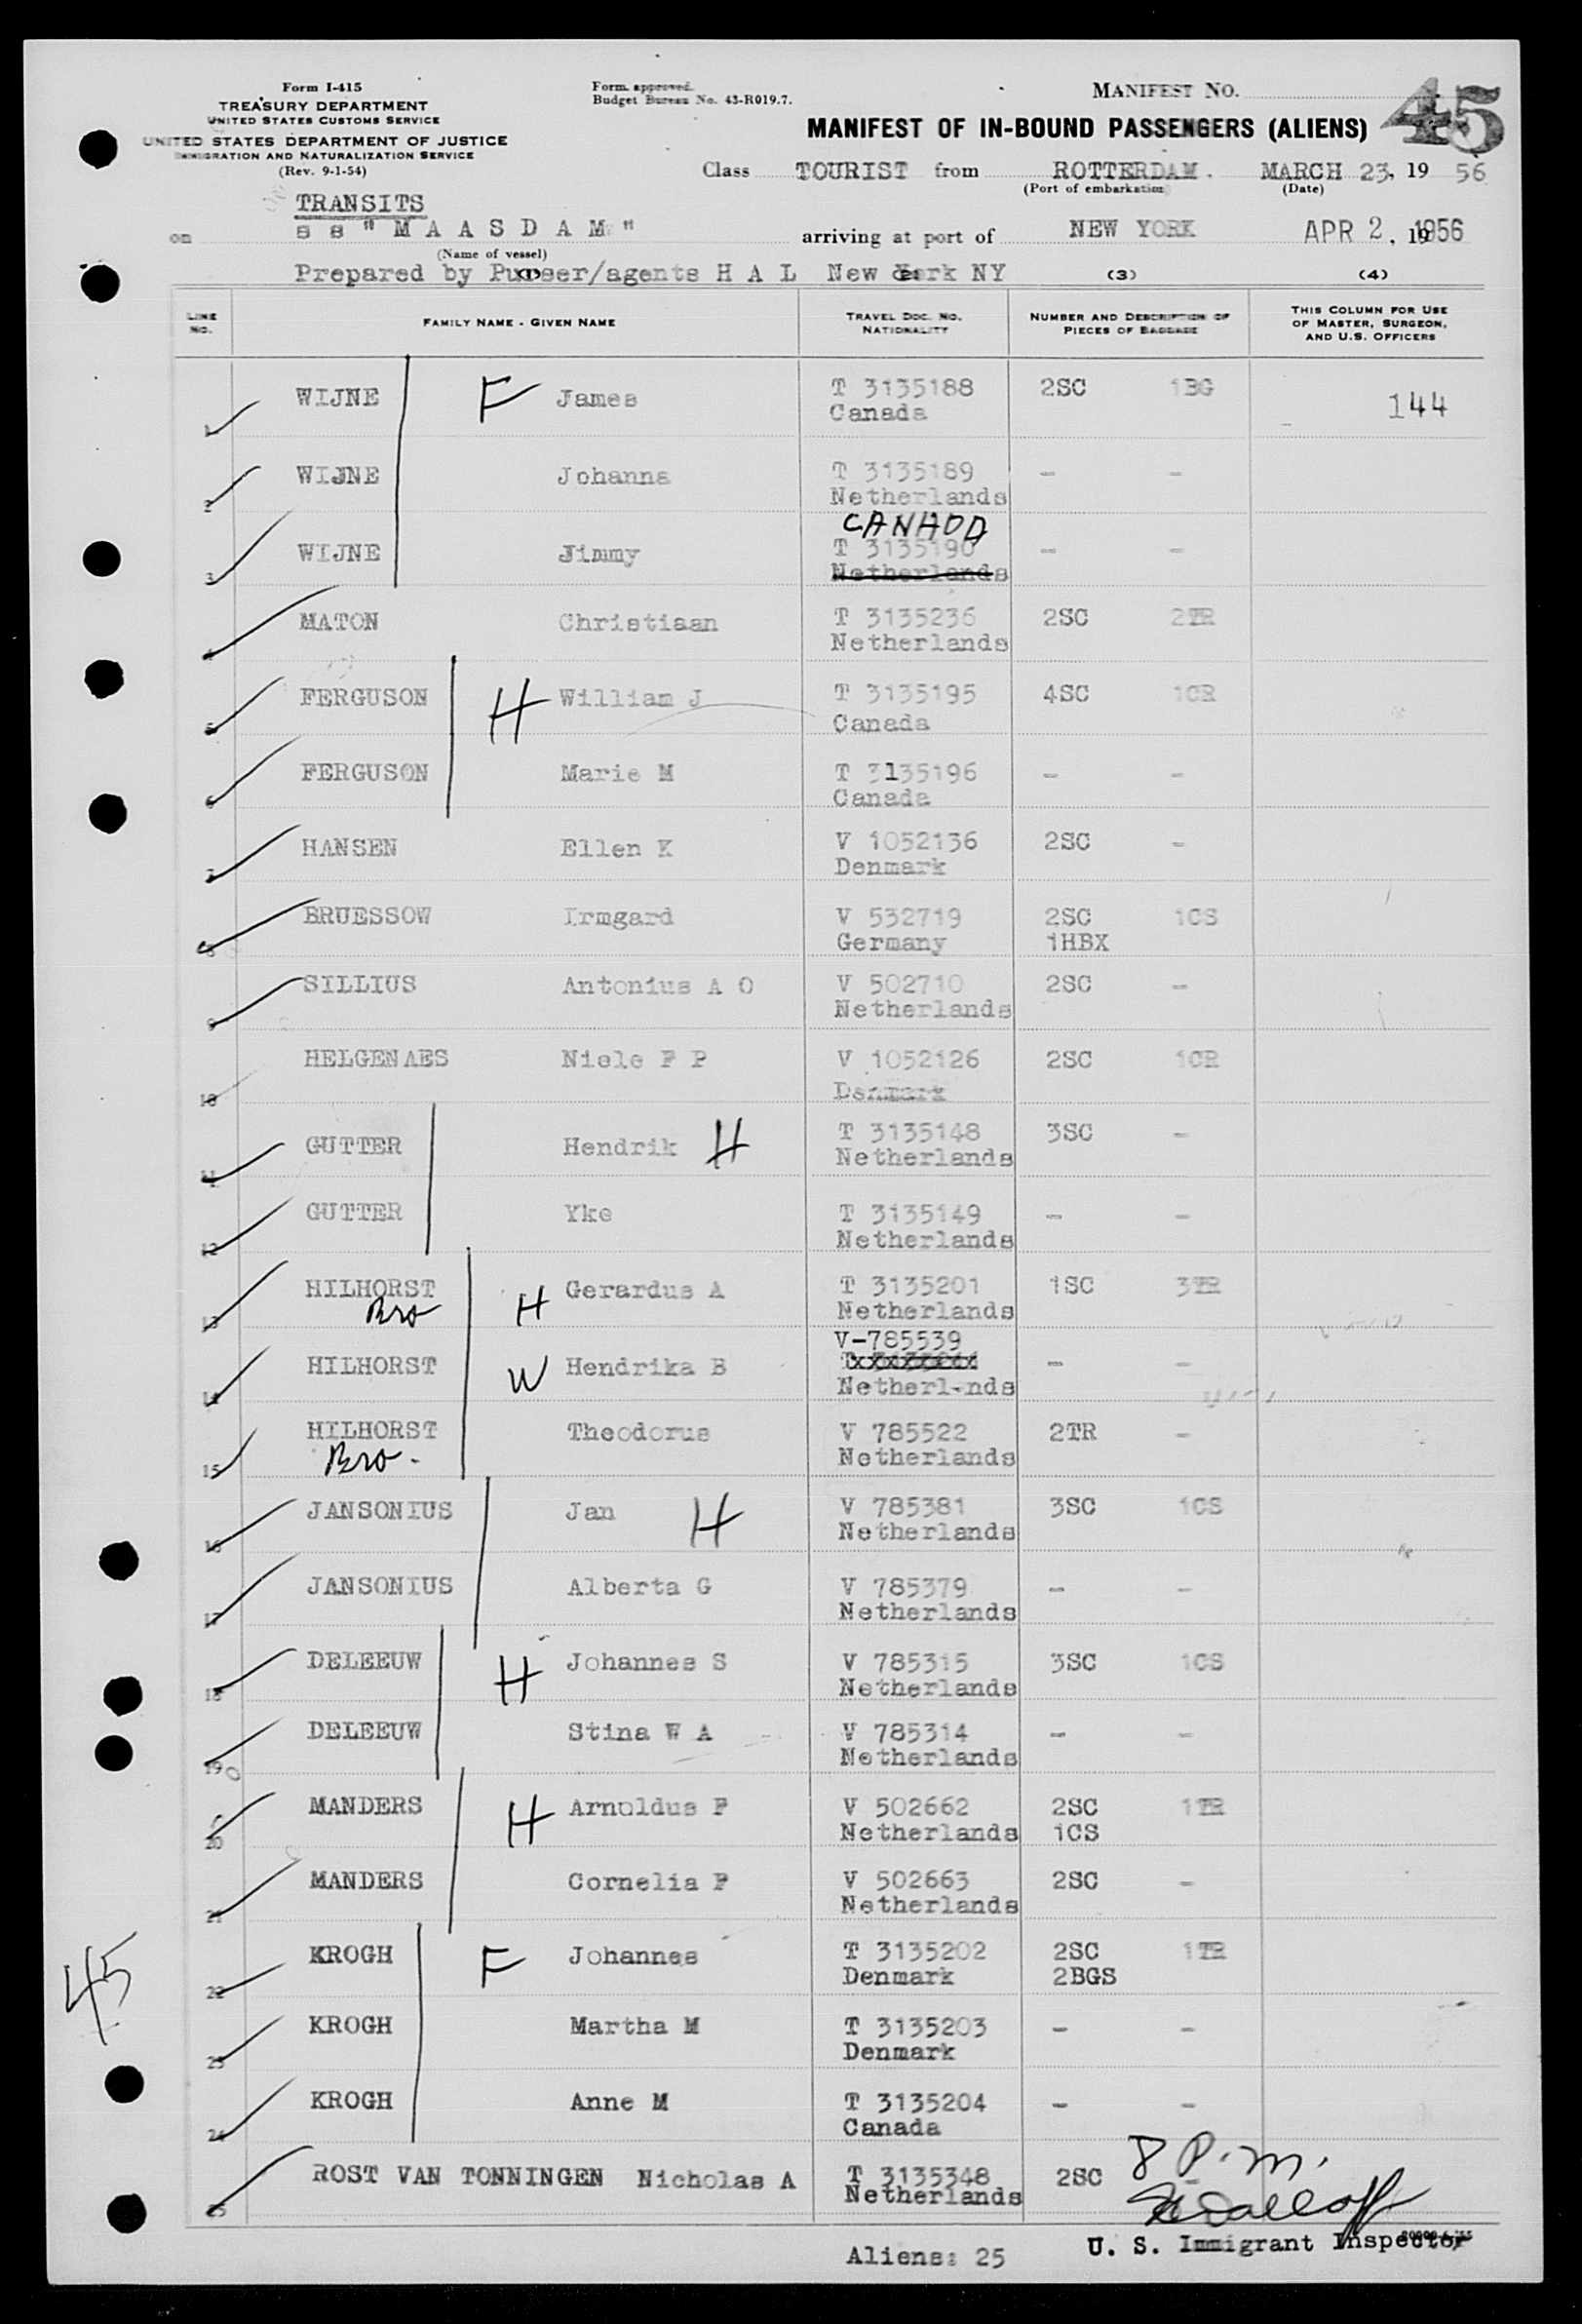 Form I-415
TREASURY DEPARTMENT
UNITED STATES CUSTOMS SERVICE
UNITED STATES DEPARTMENT OF JUSTICE
IMMIGRATION AND NATURALIZATION SERVICE
(Rev. 9-1-54)
Form approved.
Budget Bureau No. 43-R019.7.
MANIFEST NO. 45
MANIFEST OF IN-BOUND PASSENGERS (ALIENS)
Class TOURIST from ROTTERDAM. MARCH 23, 19 56
(Port of embarkation) (Date)
TRANSITS
on s s "M A A S D A M" arriving at port of NEW YORK APR 2, 1956
(Name of vessel)
Prepared by Purser/agents H A L New York NY (3) (4)
LINE NO. FAMILY NAME - GIVEN NAME TRAVEL DOC. NO. NATIONALITY NUMBER AND DESCRIPTION OF PIECES OF BAGGAGE THIS COLUMN FOR USE OF MASTER, SURGEON, AND U.S. OFFICERS
1 WIJNE F James T 3135188 2SC 1BG 144
Canada
2 WIJNE Johanna T 3135189 - -
Netherlands
CANADA
3 WIJNE Jimmy T 3135190 - -
Netherlands
4 MATON Christiaan T 3135236 2SC 2TR
Netherlands
5 FERGUSON H William J T 3135195 4SC 1CR
Canada
6 FERGUSON Marie M T 3135196 - -
Canada
7 HANSEN Ellen K V 1052136 2SC -
Denmark
8 BRUESSOW Irmgard V 532719 2SC 1CS
Germany 1HBX
9 SILLIUS Antonius A O V 502710 2SC -
Netherlands
10 HELGENAES Niels F P V 1052126 2SC 1CR
Denmark
11 GUTTER Hendrik H T 3135148 3SC -
Netherlands
12 GUTTER Yke T 3135149 - -
Netherlands
13 HILHORST H Gerardus A T 3135201 1SC 3TR
Bro Netherlands
V-785539
14 HILHORST W Hendrika B - -
Netherl-nds
15 HILHORST Theodorus V 785522 2TR -
Bro. Netherlands
16 JANSONIUS Jan H V 785381 3SC 1CS
Netherlands
17 JANSONIUS Alberta G V 785379 - -
Netherlands
18 DELEEUW H Johannes S V 785315 3SC 1CS
Netherlands
19 DELEEUW Stina W A V 785314 - -
Netherlands
20 MANDERS H Arnoldus F V 502662 2SC 1TR
Netherlands 1CS
21 MANDERS Cornelia P V 502663 2SC -
Netherlands
22 KROGH F Johannes T 3135202 2SC 1TR
Denmark 2BGS
45
23 KROGH Martha M T 3135203 - -
Denmark
24 KROGH Anne M T 3135204 - -
Canada
25 ROST VAN TONNINGEN Nicholas A T 3135348 2SC - 8 P.M.
Netherlands
Aliens: 25 U. S. Immigrant Inspector